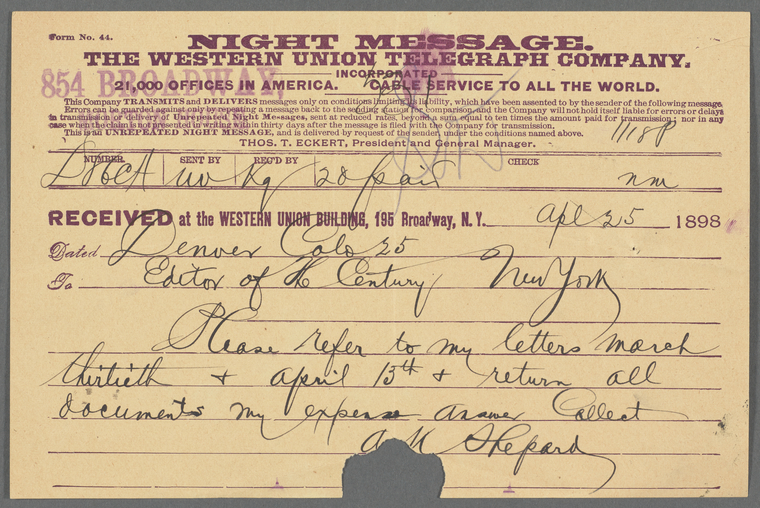 Form No. 44.
NIGHT MESSAGE.
THE WESTERN UNION TELEGRAPH COMPANY.
INCORPORATED
854 BROADWAY
21,000 OFFICES IN AMERICA. CABLE SERVICE TO ALL THE WORLD.
This Company TRANSMITS and DELIVERS messages only on conditions limiting its liability, which have been assented to by the sender of the following message.
Errors can be guarded against only by repeating a message back to the sending station for comparison, and the Company will not hold itself liable for errors or delays
in transmission or delivery of Unrepeated Night Messages, sent at reduced rates, beyond a sum equal to ten times the amount paid for transmission; nor in any
case when the claim is not presented in writing within thirty days after the message is filed with the Company for transmission.
This is an UNREPEATED NIGHT MESSAGE, and is delivered by request of the sender, under the conditions named above.
1118P
THOS. T. ECKERT, President and General Manager.
NUMBER SENT BY REC'D BY CHECK
Kg 28 paid nm
RECEIVED at the WESTERN UNION BUILDING, 195 Broadway, N. Y. Apl 25 1898
Dated Denver Colo 25
To Editor of the Century New York
Please refer to my letters march
thirtieth & april 13th & return all
documents my expense answer Collect
A M Shepard